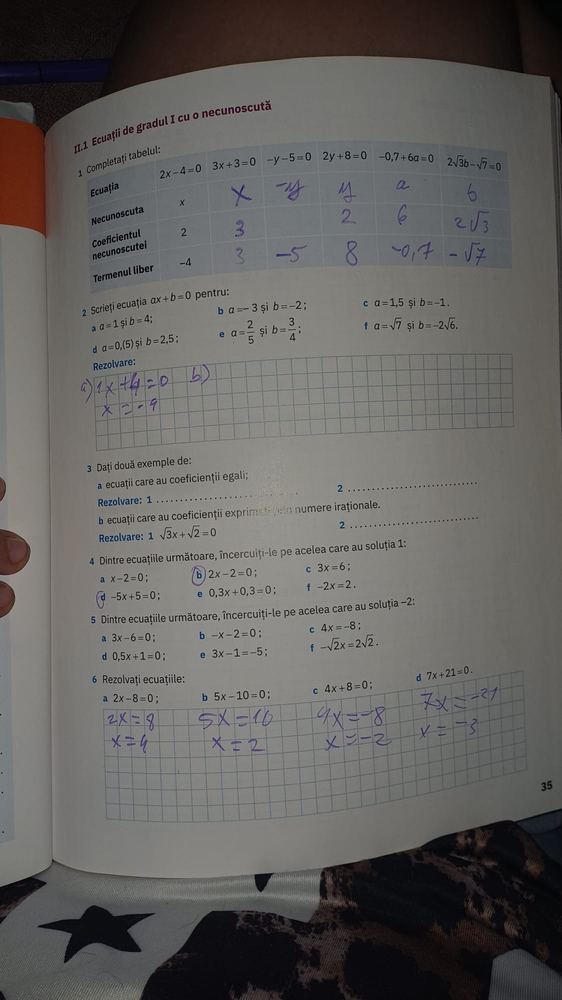 II.1 Ecuații de gradul I cu o necunoscută
1 Completați tabelul:
Ecuația 2x−4=0 3x+3=0 −y−5=0 2y+8=0 −0,7+6a=0 2√3b−√7=0
Necunoscuta x x −y y a b
Coeficientul necunoscutei 2 3 2 6 2√3
Termenul liber −4 3 −5 8 −0,7 −√7
2 Scrieți ecuația ax+b=0 pentru:
a a=1 și b=4; b a=−3 și b=−2; c a=1,5 și b=−1.
d a=0,(5) și b=2,5; e a=2/5 și b=3/4; f a=√7 și b=−2√6.
Rezolvare:
a) 1x+4=0 b)
x=−4
3 Dați două exemple de:
a ecuații care au coeficienții egali;
Rezolvare: 1 ........................ 2 ........................
b ecuații care au coeficienții exprimați prin numere iraționale.
Rezolvare: 1 √3x+√2=0 2 ........................
4 Dintre ecuațiile următoare, încercuiți-le pe acelea care au soluția 1:
a x−2=0; b 2x−2=0; c 3x=6;
d −5x+5=0; e 0,3x+0,3=0; f −2x=2.
5 Dintre ecuațiile următoare, încercuiți-le pe acelea care au soluția −2:
a 3x−6=0; b −x−2=0; c 4x=−8;
d 0,5x+1=0; e 3x−1=−5; f −√2x=2√2.
6 Rezolvați ecuațiile:
a 2x−8=0; b 5x−10=0; c 4x+8=0; d 7x+21=0.
2x=8 5x=10 4x=−8 7x=−21
x=4 x=2 x=−2 x=−3
35